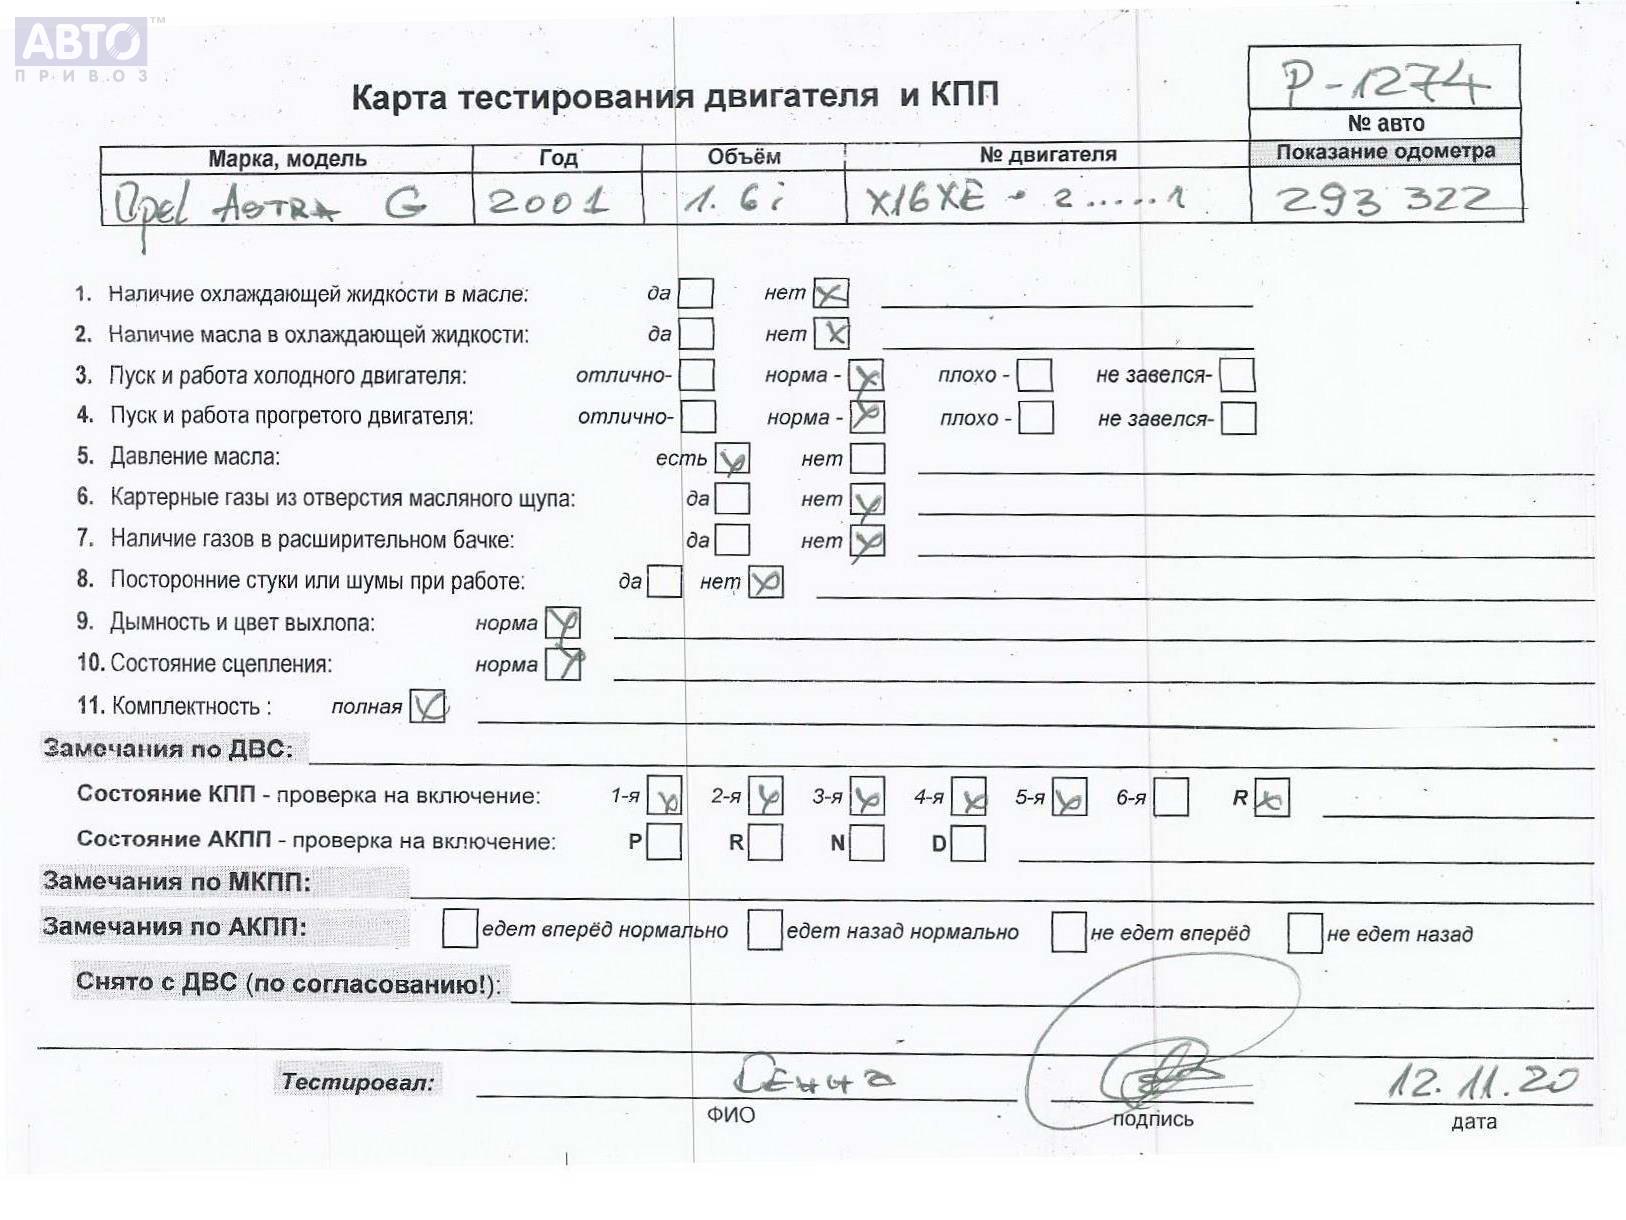 АВТО™
ПРИВОЗ
Карта тестирования двигателя и КПП
Р-1274
№ авто
Марка, модель Год Объём № двигателя Показание одометра
Opel Astra G 2001 1.6i X16XE - 2.....1 293 322
1. Наличие охлаждающей жидкости в масле: да нет
2. Наличие масла в охлаждающей жидкости: да нет
3. Пуск и работа холодного двигателя: отлично- норма - плохо - не завелся-
4. Пуск и работа прогретого двигателя: отлично- норма - плохо - не завелся-
5. Давление масла: есть нет
6. Картерные газы из отверстия масляного щупа: да нет
7. Наличие газов в расширительном бачке: да нет
8. Посторонние стуки или шумы при работе: да нет
9. Дымность и цвет выхлопа: норма
10. Состояние сцепления: норма
11. Комплектность : полная
Замечания по ДВС:
Состояние КПП - проверка на включение: 1-я 2-я 3-я 4-я 5-я 6-я R
Состояние АКПП - проверка на включение: P R N D
Замечания по МКПП:
Замечания по АКПП: едет вперёд нормально едет назад нормально не едет вперёд не едет назад
Снято с ДВС (по согласованию!):
Тестировал: 12.11.20
ФИО подпись дата